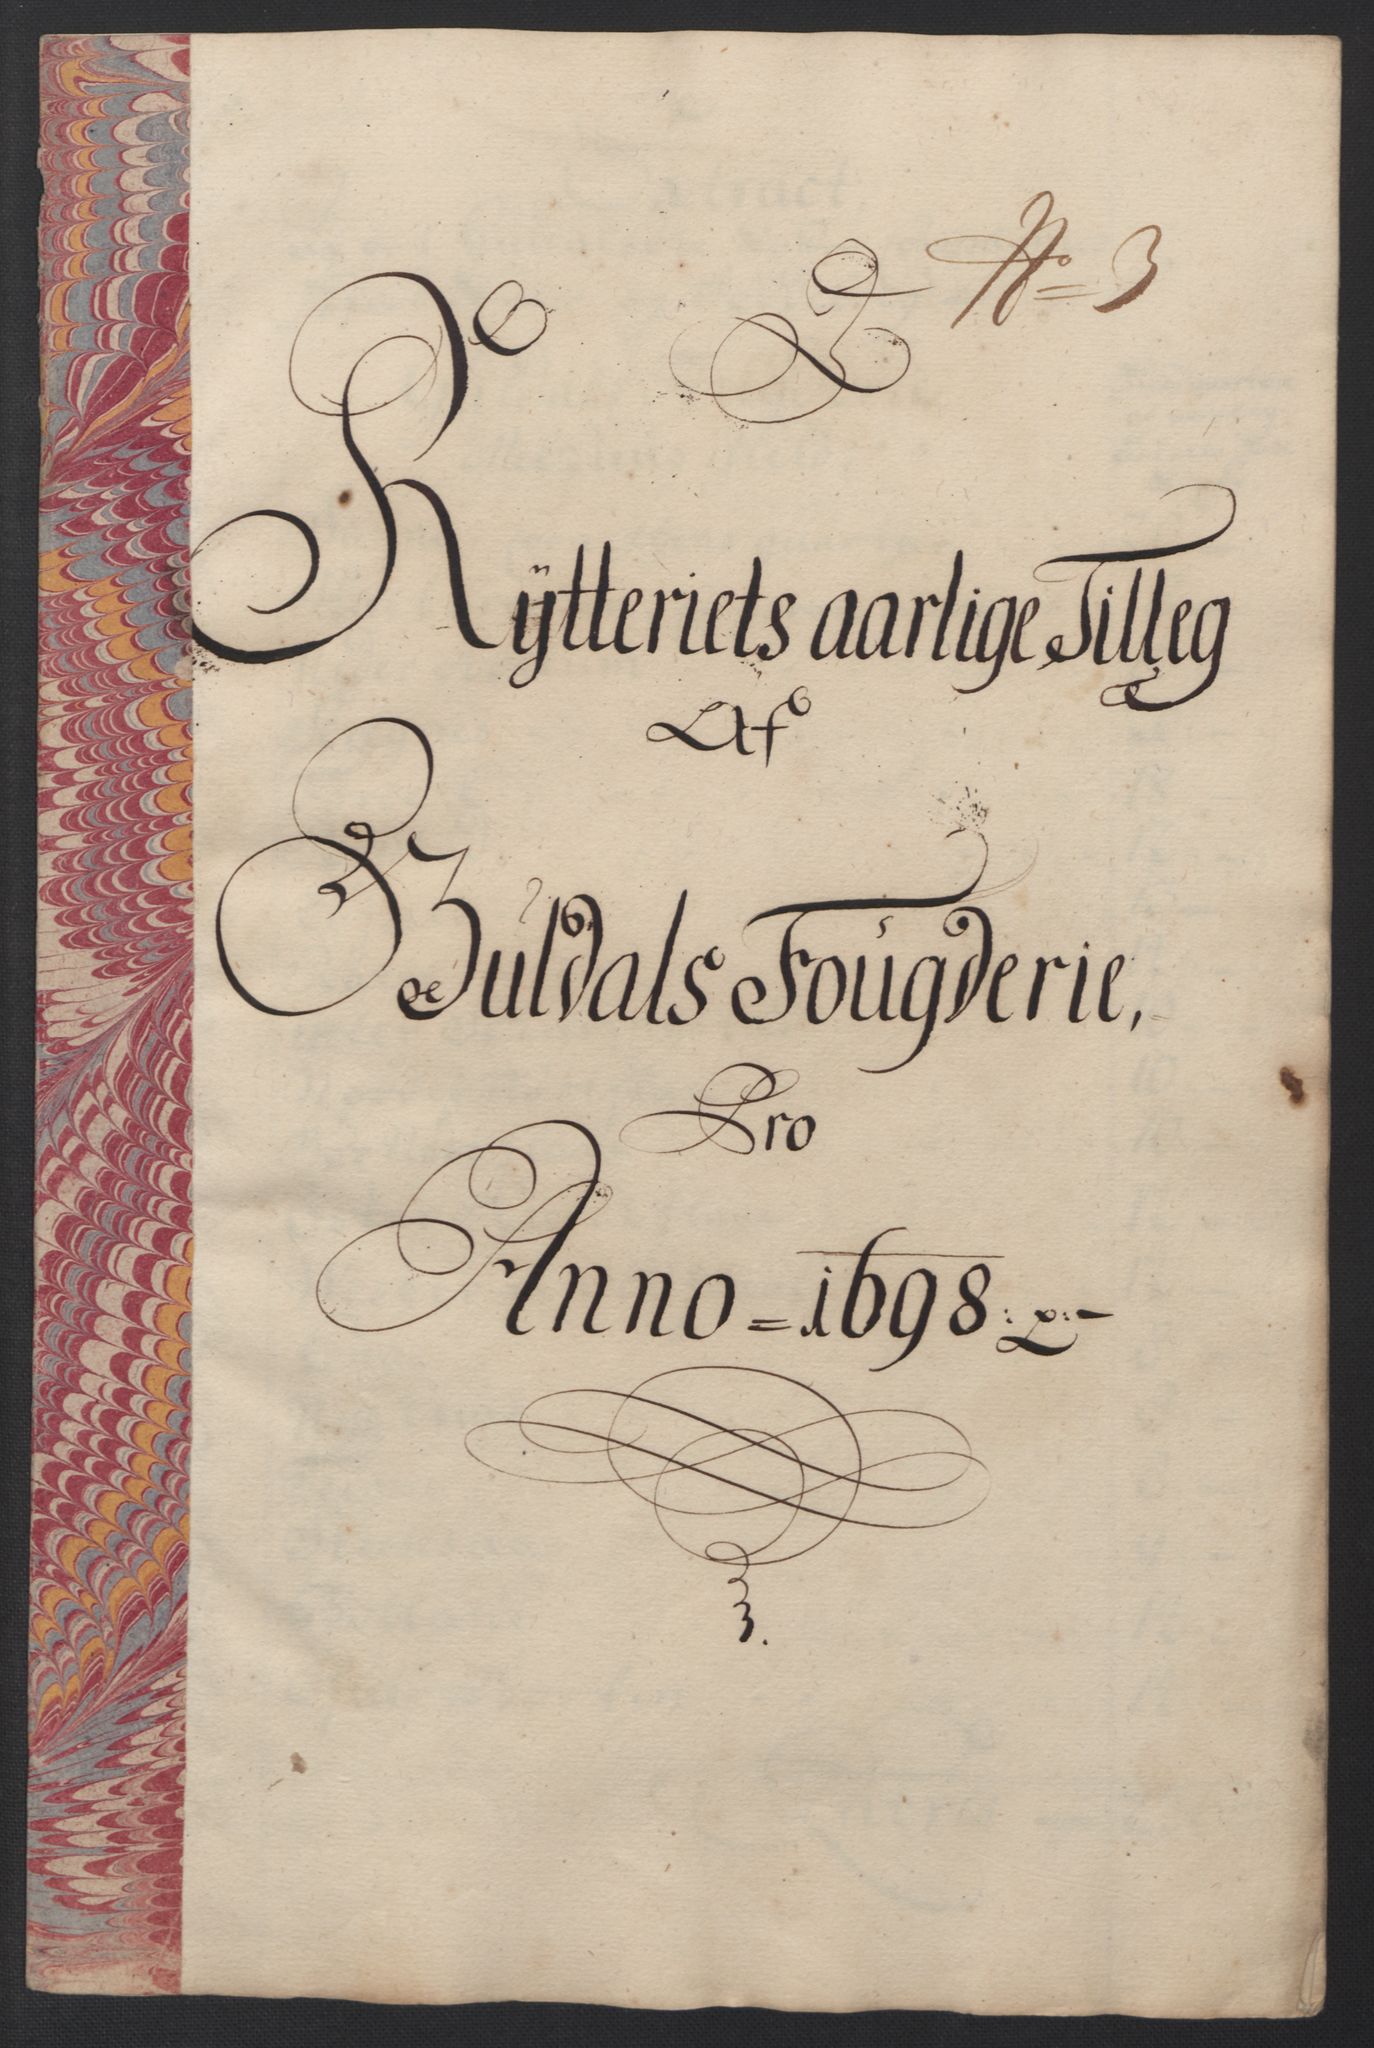 No = 3
Rÿtteriets aarlige Tilleg
Af
Guldals Fougderie,
Pro
Anno = 1698:
3.